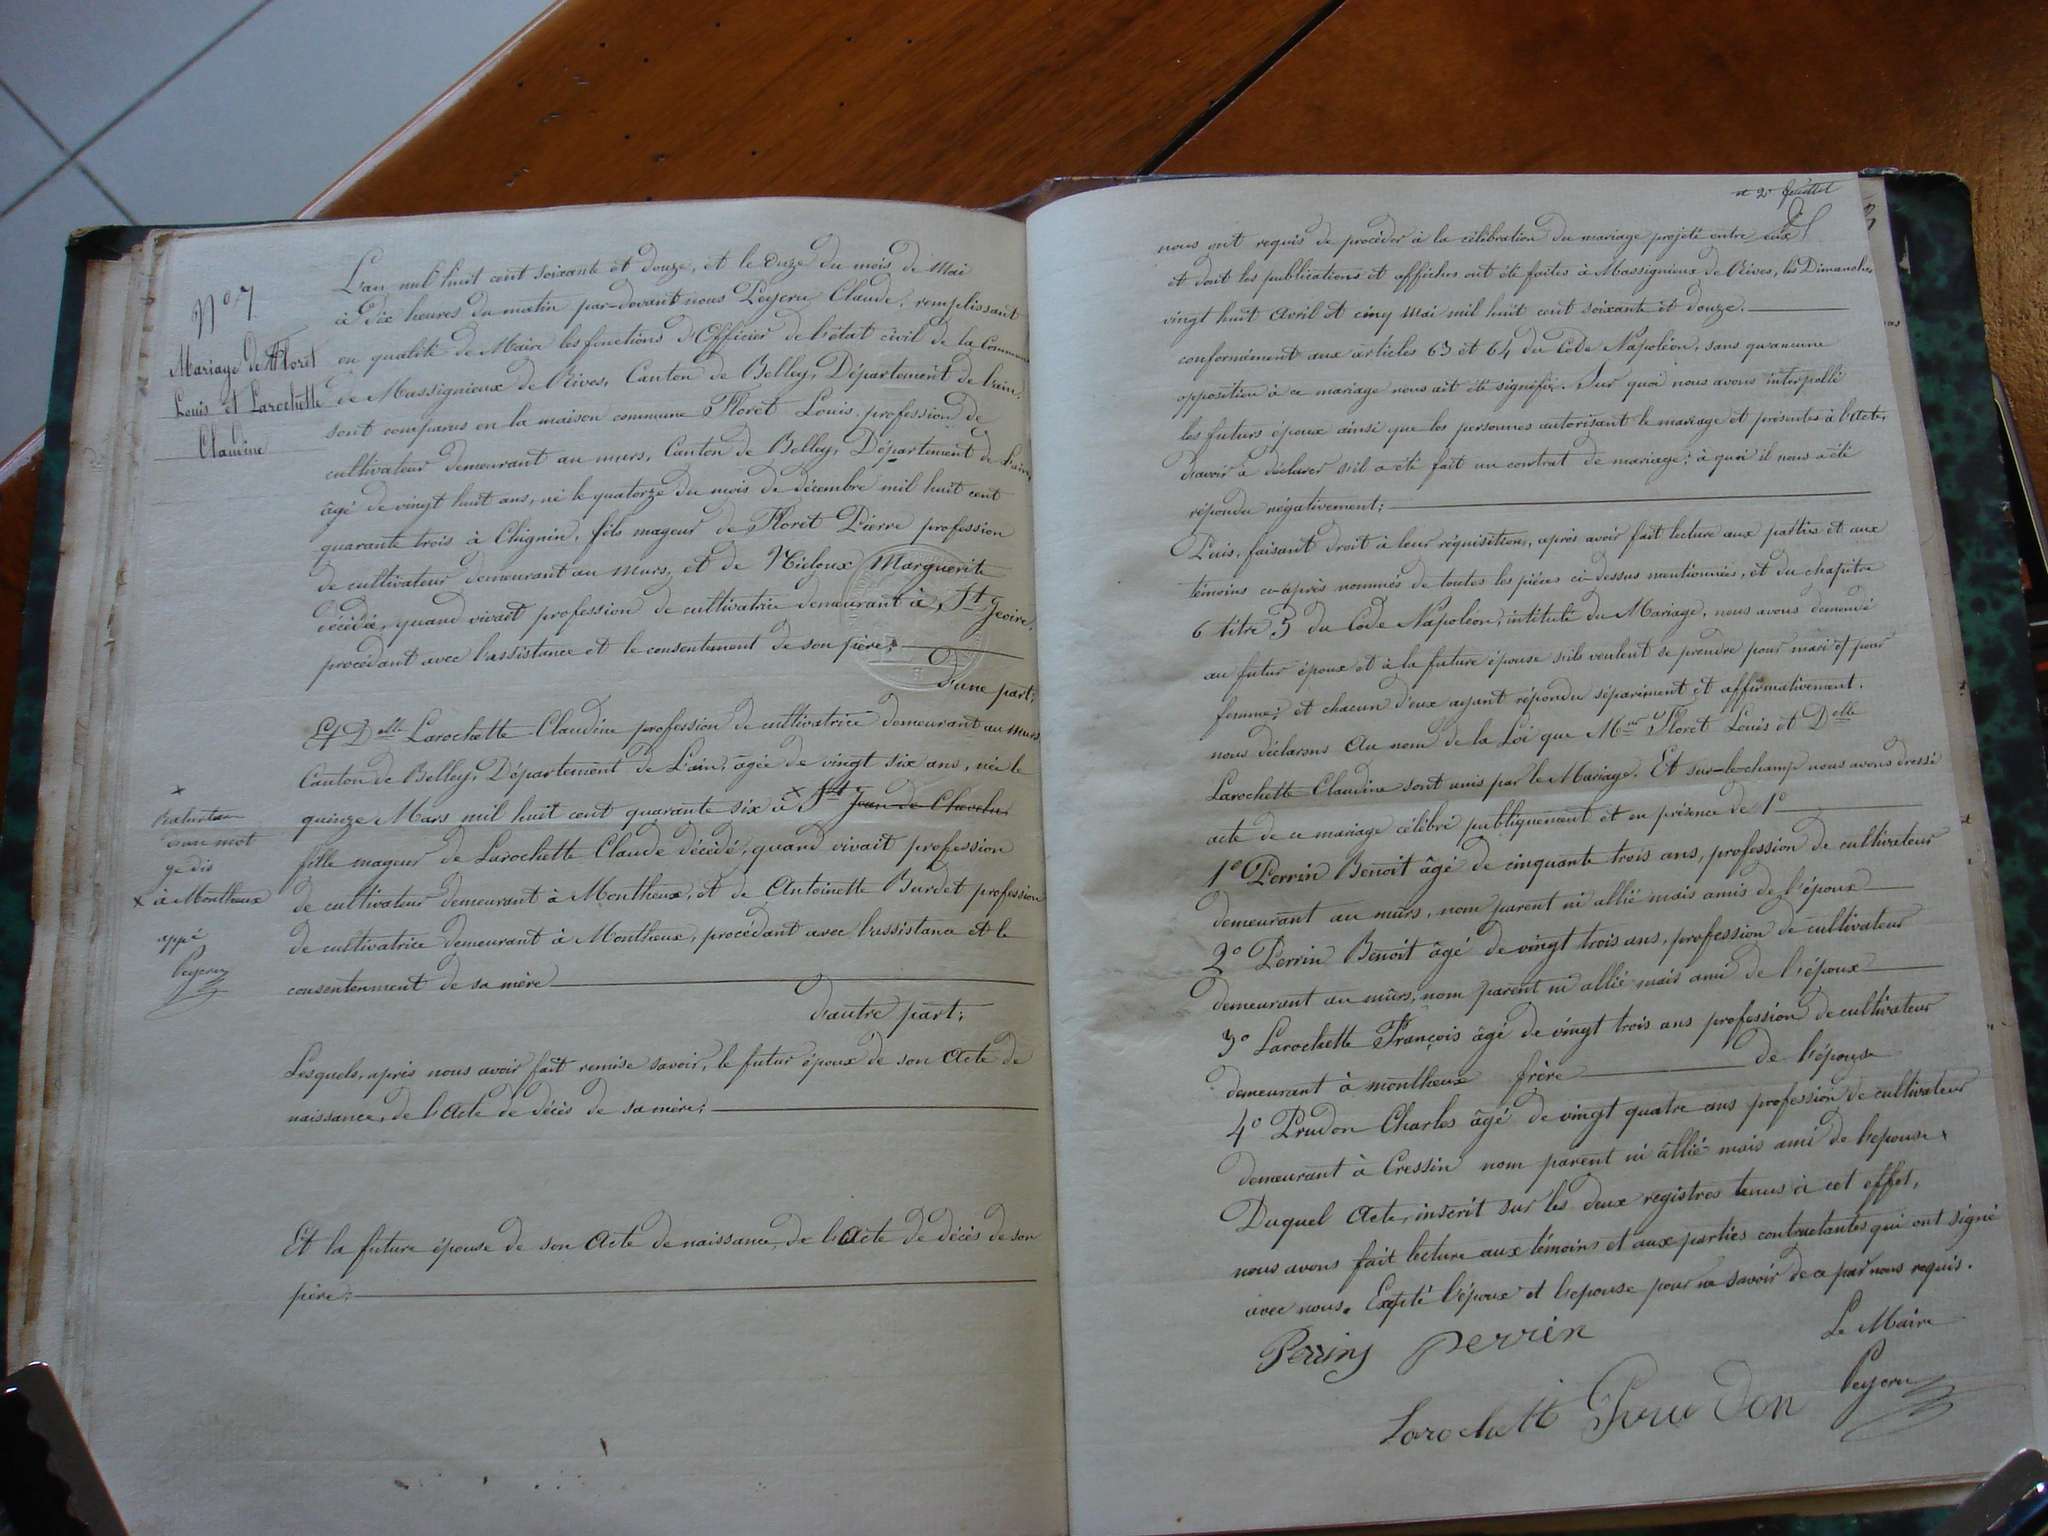 N° 7
Mariage de Floret
Louis et Larochette
Claudine
L'an mil huit cent soixante et douze, et le onze du mois de Mai
à dix heures du matin par-devant nous Peyeru Claude, remplissant
en qualité de Maire les fonctions d'Officier de l'état civil de la Commune
de Massignieux de Rives, Canton de Belley, Département de l'ain,
sont comparus en la maison commune Floret Louis, profession de
cultivateur demeurant au murs, Canton de Belley, Département de l'ain,
âgé de vingt huit ans, né le quatorze du mois de décembre mil huit cent
quarante trois à Chignin, fils mageur de Floret Pierre profession
de cultivateur demeurant au murs, et de Marguerite
décédée, quand vivait profession de cultivatrice demeurant à St Jeoire,
procédant avec l'assistance et le consentement de son père;
d'une part;
Et Delle Larochette Claudine profession de cultivatrice demeurant au murs
Canton de Belley, Département de L'ain, âgée de vingt six ans, née le
quinze Mars mil huit cent quarante six à × St Jean de Chevelu
fille mageur de Larochette Claude décédé, quand vivait profession
de cultivateur demeurant à Montheux, et de Antoinette Burdet profession
de cultivatrice demeurant à Montheux, procédant avec l'assistance et le
consentement de sa mère
d'autre part;
×
mot
ge dis
× à Montheux
appé
Peyeru
Lesquels, après nous avoir fait remise savoir, le futur époux de son Acte de
naissance, de l'Acte de décès de sa mère;
Et la future épouse de son Acte de naissance, de l'Acte de décès de son
père;
et 2 Juillet
nous ont requis de procéder à la célébration du mariage projeté entre eux
et dont les publications et affiches ont été faites à Massignieux de Rives, les Dimanches
vingt huit Avril et cinq Mai mil huit cent soixante et douze.
conformément aux articles 63 et 64 du Code Napoléon, sans qu'aucune
opposition à ce mariage nous ait été signifié. Sur quoi nous avons interpellé
les futurs époux ainsi que les personnes autorisant le mariage et présentes à l'Acte,
d'avoir à déclarer s'il a été fait un contrat de mariage; à quoi il nous a été
répondu négativement;
Puis, faisant droit à leur réquisition, après avoir fait lecture aux parties et aux
témoins ci-après nommés de toutes les pièces ci-dessus mentionnées, et du chapitre
6 titre 5 du Code Napoléon, intitulé du Mariage, nous avons demandé
au futur époux et à la future épouse s'ils veulent se prendre pour mari et pour
femme; et chacun d'eux ayant répondu séparément et affirmativement,
nous déclarons Au nom de la Loi que Mr Floret Louis et Delle
Larochette Claudine sont unis par le Mariage. Et sur-le-champ nous avons dressé
acte de ce mariage célébré publiquement et en présence de 1°
1° Perrin Benoit âgé de cinquante trois ans, profession de cultivateur
demeurant au murs, nom parent ni allié mais amis de l'époux
2° Perrin Benoit âgé de vingt trois ans, profession de cultivateur
demeurant au murs, nom parent ni allié mais ami de l'époux
3° Larochette François âgé de vingt trois ans profession de cultivateur
demeurant à montheux frère de l'épouse
4° Prudon Charles âgé de vingt quatre ans profession de cultivateur
demeurant à Cressin nom parent ni allié mais ami de l'epouse
Duquel Acte, inscrit sur les deux registres tenus à cet effet,
nous avons fait lecture aux témoins et aux parties contractantes qui ont signé
avec nous. Exepté l'époux et l'epouse pour ne savoir de ce par nous requis.
Le Maire
Perrin Perrin
Peyeru
Larochett Prudon